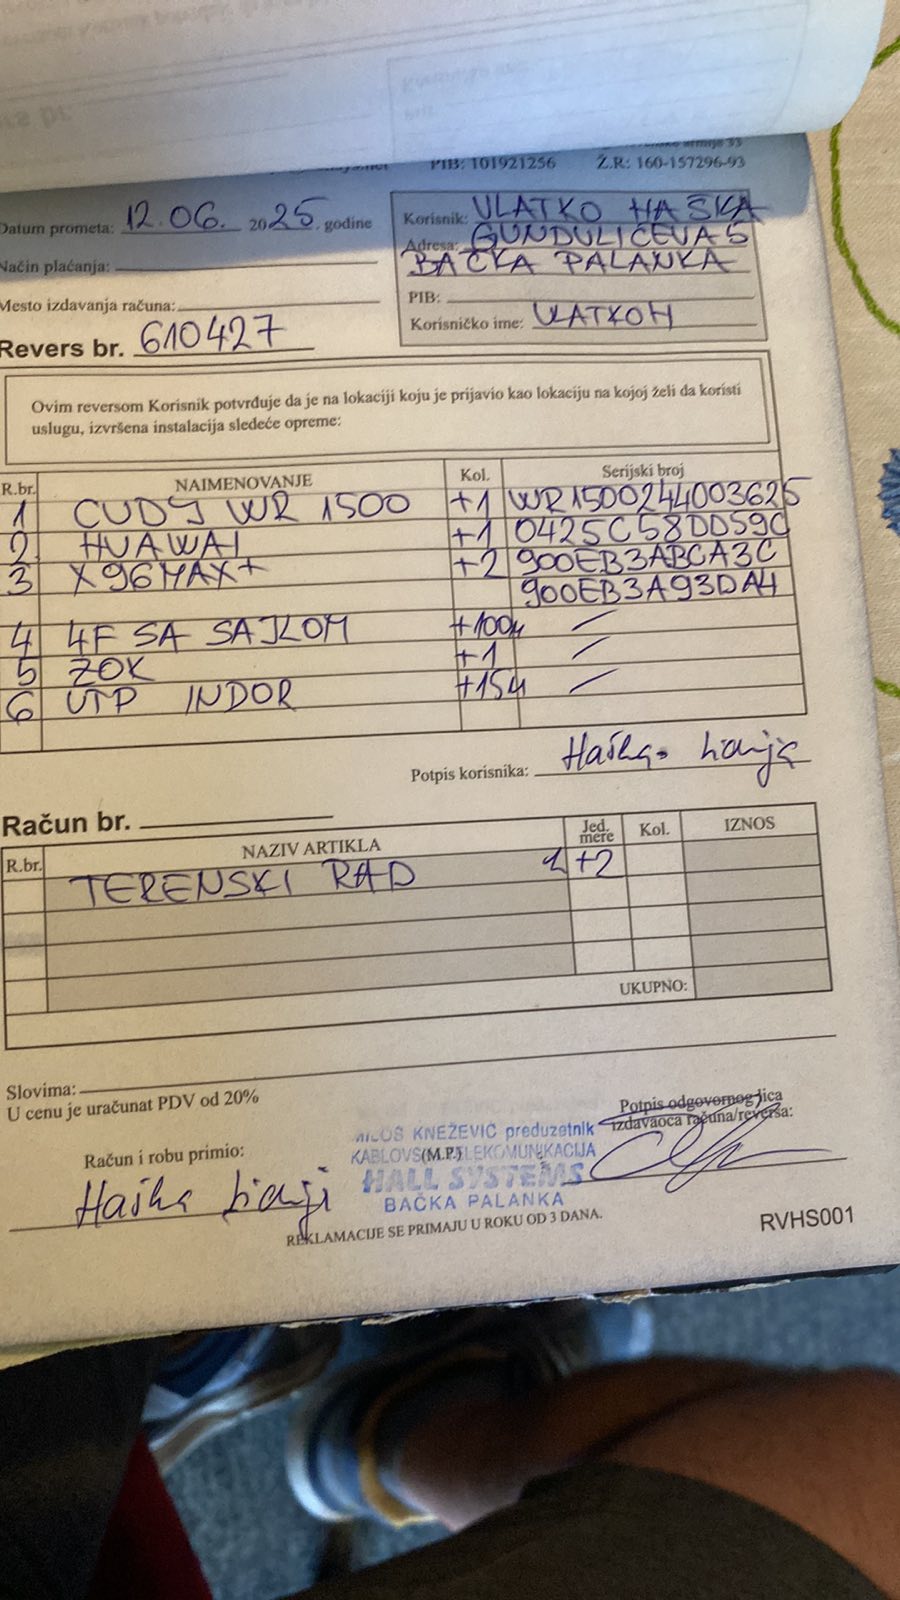 PIB: 101921256 Ž.R: 160-157296-93
Datum prometa: 12.06. 2025. godine
Način plaćanja:
Mesto izdavanja računa:
Revers br. 610427
Korisnik: VLATKO HAŠKA
Adresa: GUNDULIĆEVA 5
BAČKA PALANKA
PIB:
Korisničko ime: VLATKOH
Ovim reversom Korisnik potvrđuje da je na lokaciji koju je prijavio kao lokaciju na kojoj želi da koristi
uslugu, izvršena instalacija sledeće opreme:
R.br. NAIMENOVANJE Kol. Serijski broj
1 CUDY WR 1500 +1 WR1500244003625
2 HUAWAI +1 0425C58DD59C
3 X96MAX+ +2 900EB3ABCA3C
900EB3A93DA4
4 4F SA SAJLOM +100m
5 ZOK +1
6 UTP INDOR +15m
Potpis korisnika: Haška Lidija
Račun br.
R.br. NAZIV ARTIKLA Jed. mere Kol. IZNOS
TERENSKI RAD +2
UKUPNO:
Slovima:
U cenu je uračunat PDV od 20%
Račun i robu primio:
Haška Lidija
MILOŠ KNEŽEVIĆ preduzetnik
KABLOVSKA TELEKOMUNIKACIJA
(M.P.)
HALL SYSTEMS
BAČKA PALANKA
Potpis odgovornog lica
izdavaoca računa/reversa:
REKLAMACIJE SE PRIMAJU U ROKU OD 3 DANA.
RVHS001